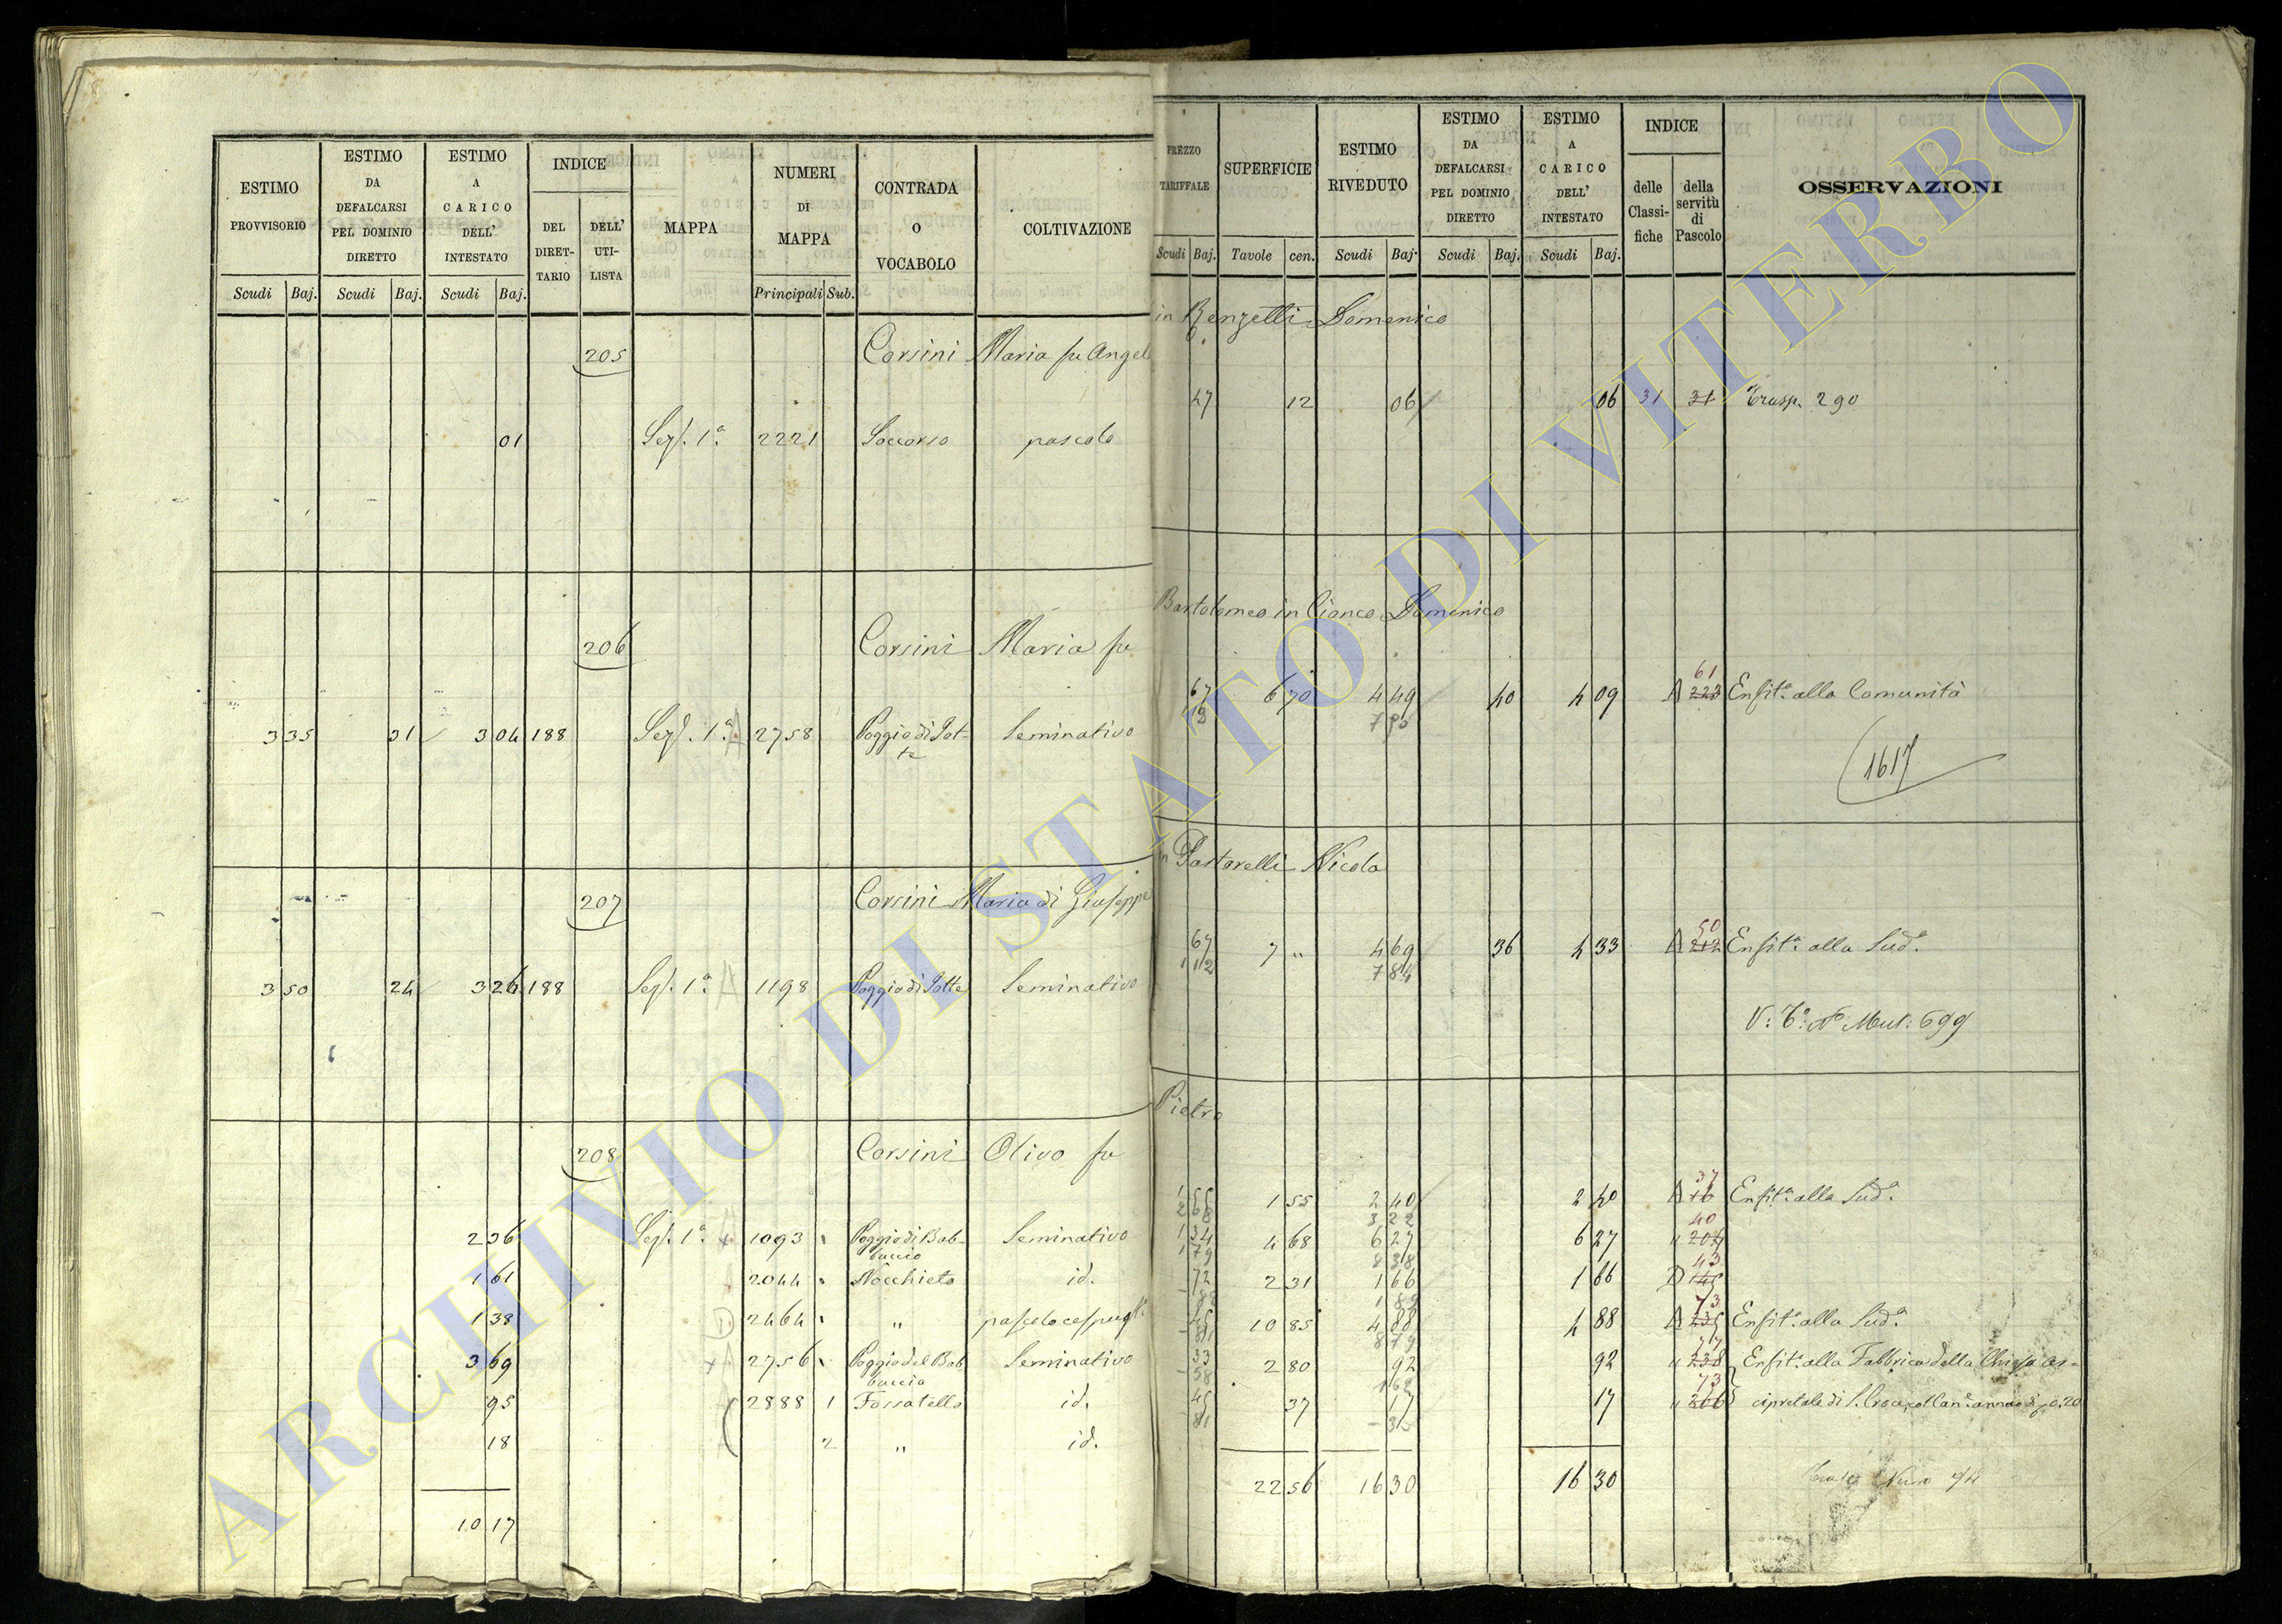 ESTIMO PROVVISORIO Scudi Baj.
ESTIMO DA DEFALCARSI PEL DOMINIO DIRETTO Scudi Baj.
ESTIMO A CARICO DELL' INTESTATO Scudi Baj.
INDICE DEL DIRET-TARIO DELL' UTI-LISTA
MAPPA
NUMERI DI MAPPA Principali Sub.
CONTRADA O VOCABOLO
COLTIVAZIONE
205 Corsini Maria fu Angelo
01 Sez. 1ª 2221 Soccorso pascolo
206 Corsini Maria fu
3 35 31 3 04 188 Sez. 1ª A 2758 Poggio di Sot-
te Seminativo
207 Corsini Maria di Giuseppe
3 50 24 3 26 188 Sez. 1ª A 1198 Poggio di Sotte Seminativo
208 Corsini Olivo fu
2 36 Sez. 1ª 1093 Poggio di Bab-
buccio Seminativo
1 61 2044 Nocchieto id.
1 38 2464 " pascolo cespugl.
3 69 2756 Poggio del Bab
buccio Seminativo
95 2888 1 Fossatello id.
18 2 " id.
10 17
PREZZO TARIFFALE Scudi Baj.
SUPERFICIE Tavole cen.
ESTIMO RIVEDUTO Scudi Baj.
ESTIMO DA DEFALCARSI PEL DOMINIO DIRETTO Scudi Baj.
ESTIMO A CARICO DELL' INTESTATO Scudi Baj.
INDICE delle Classi-fiche della servitù di Pascolo
OSSERVAZIONI
in Renzetti Domenico
47 12 06 06 31 31 Trasp. 290
Bartolomeo in Cianca Domenico
61
67 6 70 4 49 40 4 09 A 223 Enfit. alla Comunità
1617
in Pastorelli Nicola
50
67 7 " 4 69 36 4 33 A 212 Enfit. alla Sud.
7 84
V: Mut: 699
Pietro
37
1 55 1 55 2 40 2 40 A 16 Enfit. alla Sud.
3 22
40
1 34 4 68 6 27 6 27 " 204
1 79 8 38
43
72 2 31 1 66 1 66 D 145
73
45 10 85 4 88 4 88 A 235 Enfit. alla Sud.
81 8 79
77
33 2 80 92 92 " 238 Enfit. alla Fabbrica della Chiesa ar-
58 1 62
73
45 37 17 17 " 206 cipretale di S. Croce coll an. annuo di 0.20
81
22 56 16 30 16 30
ARCHIVIO DI STATO DI VITERBO